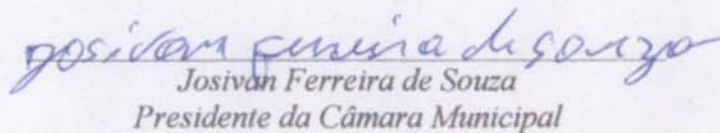 josivan ferreira de souza
Josivan Ferreira de Souza
Presidente da Câmara Municipal